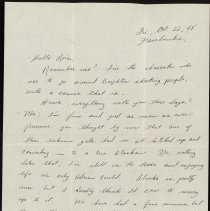 Fri., Oct 22, '48
Fairbanks,
Hello Lois,
Remember me? I'm the character who
use to go around Brighton shooting people,
with a camera that is.
How's everything with you these days?
Me, I'm fine and just as mean as ever.
Presume you thought by now that one of
these Eskimo gals had me all hitched up and
consenting to a true Alaskan. No nothing
like that, I'm still on the loose and enjoying
life as only Adrian could. Alaska is pretty
nice but I hardly think I'd care to marry
up to it.
We have had a fine summer but